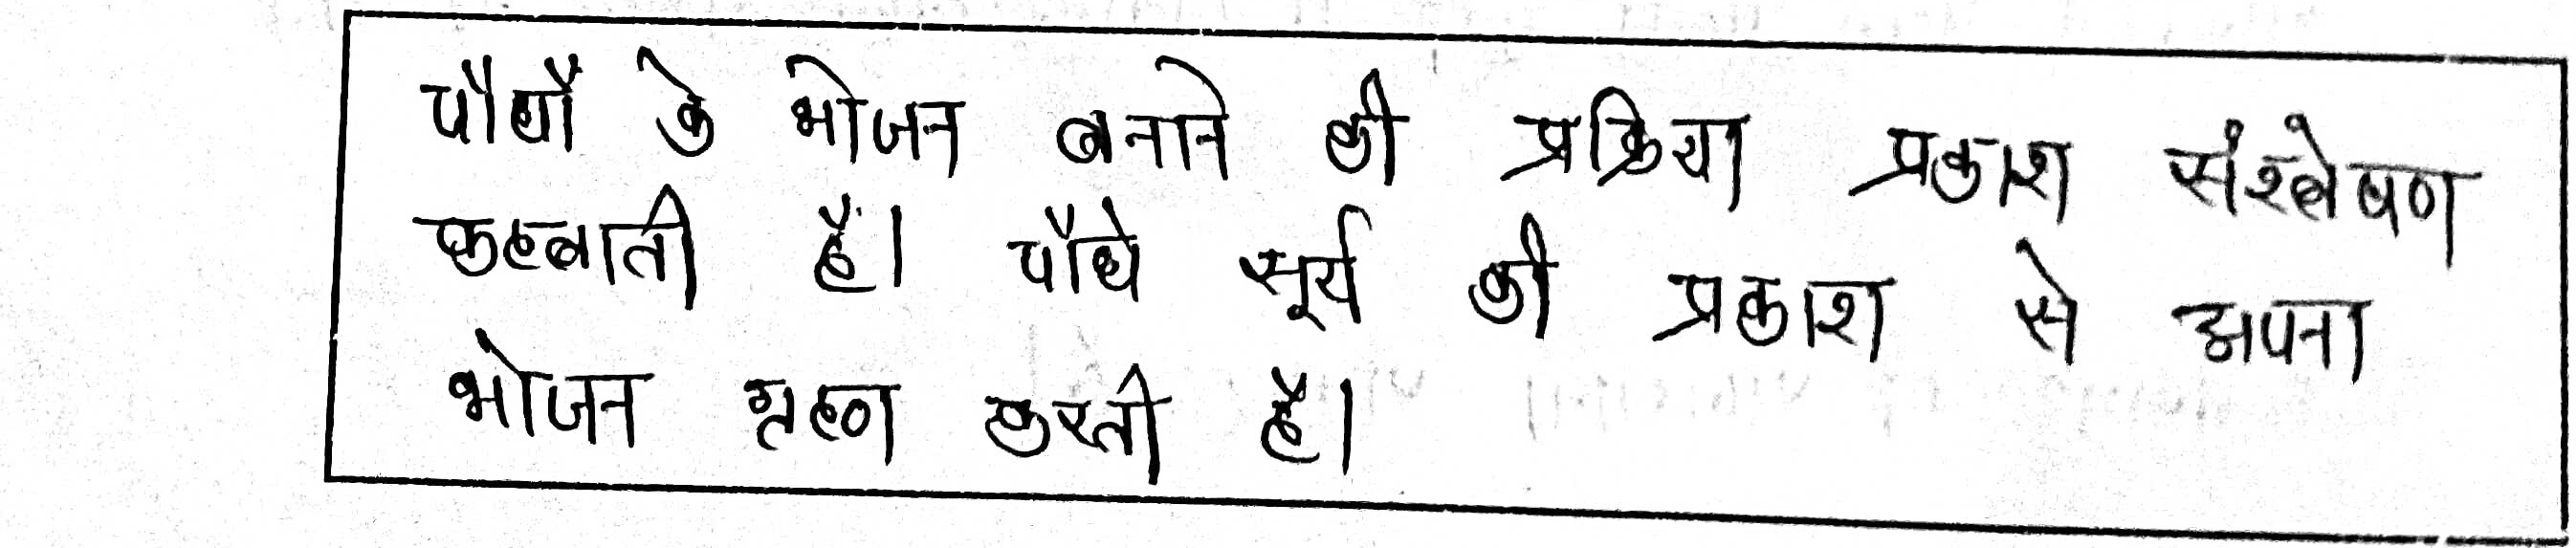 पौधौं के भोजन बनाने की प्रक्रिया प्रकाश संश्लेषण
कहलाती है। पौधे सूर्य की प्रकाश से अपना
भोजन ग्रहण करती है।